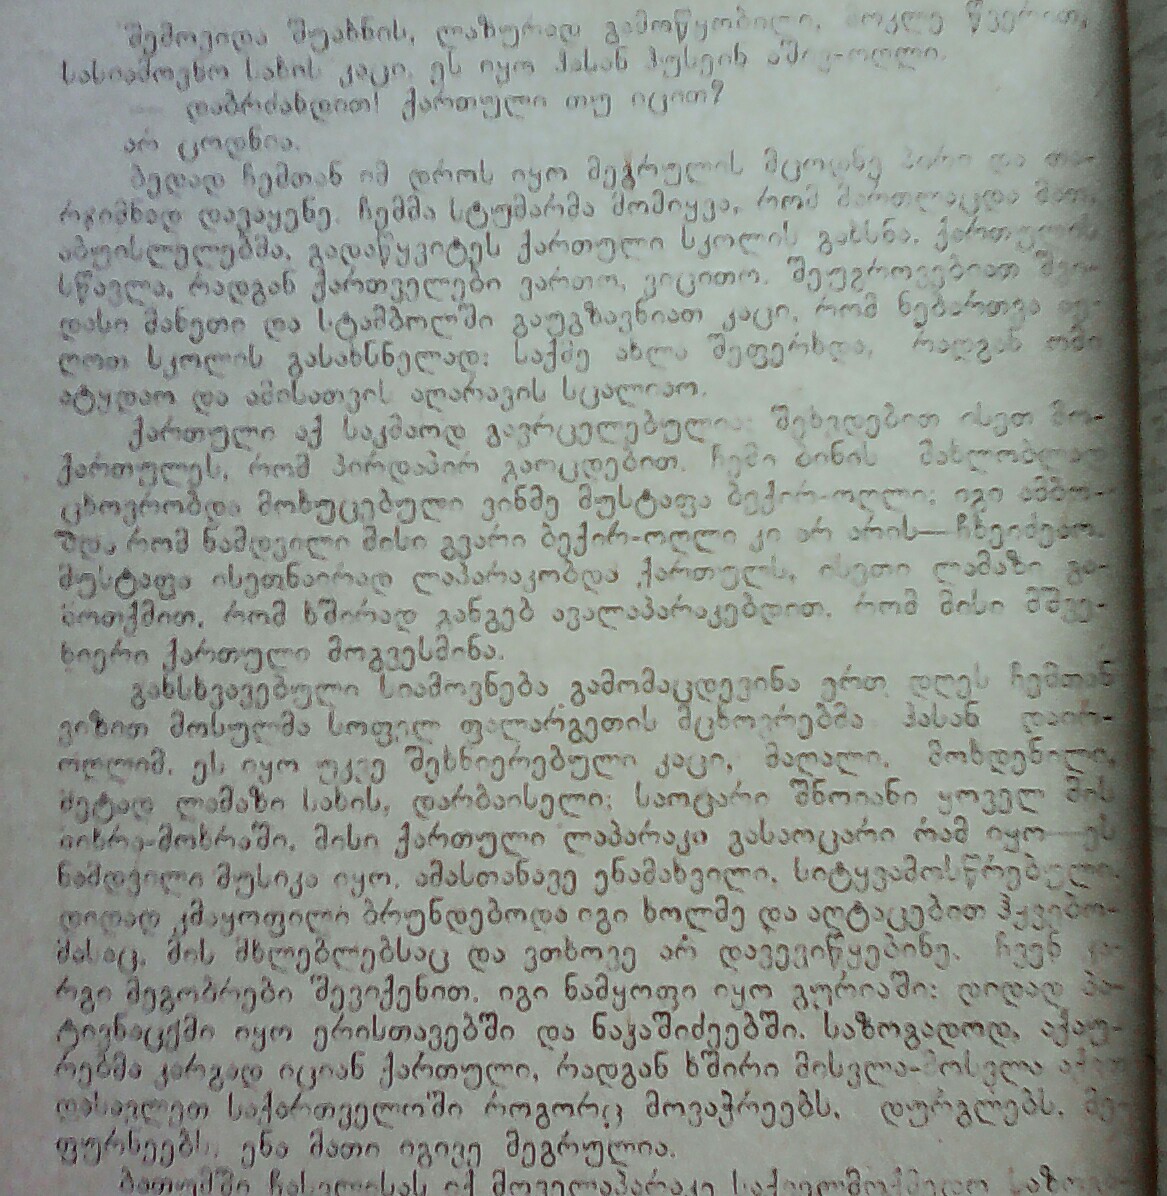 შემოვიდა შუახნის, ლაზურად გამოწყობილი, მოკლე წვერით,
სასიამოვნო სახის კაცი. ეს იყო ჰასან ჰუსეინ
დაბრძანდით! ქართული თუ იცით?
არ ცოდნია.
ბედად ჩემთან იმ დროს იყო მეგრულის მცოდნე ბირი და თა-
რჯიმნად დავაყენე. ჩემმა სტუმარმა მომიყვა, რომ მართლაცდა მათ,
აბუისლელებმა, გადაწყვიტეს ქართული სკოლის გახსნა, ქართულის
სწავლა, რადგან ქართველები ვართო, ვიცითო. შეუგროვებიათ შვი-
დასი მანეთი და სტამბოლში გაუგზავნიათ კაცი, რომ ნებართვა აე-
ღოთ სკოლის გასახსნელად; საქმე ახლა შეფერხდა, რადგან ომი
ატყდაო და ამისათვის აღარავის სცალიაო.
ქართული აქ საკმაოდ გავრცელებულია; შეხვდებით ისეთ მო-
ქართულეს, რომ პირდაპირ გაოცდებით. ჩემი ბინის მახლობლად
ცხოვრობდა მოხუცებული ვინმე მუსტაფა ბექირ-ოღლი; იგი ამბო-
ბდა, რომ ნამდვილი მისი გვარი ბექირ-ოღლი კი არ არის—ჩხეიძეაო.
მუსტაფა ისეთნაირად ლაპარაკობდა ქართულს, ისეთი ლამაზი გა-
მოთქმით, რომ ხშირად განგებ ავალაპარაკებდით, რომ მისი მშვე-
ნიერი ქართული მოგვესმინა.
განსხვავებული სიამოვნება გამომაცდევინა ერთ დღეს ჩემთან
ვიზით მოსულმა სოფელ ფალარგეთის მცხოვრებმა ჰასან დაირ-
ოღლიმ. ეს იყო უკვე შეხნიერებული კაცი, მაღალი, მოხდენილი,
მეტად ლამაზი სახის, დარბაისელი; საოცარი შნოიანი ყოველ მის
მიხრა-მოხრაში. მისი ქართული ლაპარაკი გასაოცარი რამ იყო—ეს
ნამდვილი მუსიკა იყო. ამასთანავე ენამახვილი, სიტყვამოსწრებული.
დიდად კმაყოფილი ბრუნდებოდა იგი ხოლმე და აღტაცებით ჰყვებო-
მასაც, მის მხლებლებსაც და ვთხოვე არ დავევიწყებინე. ჩვენ კა-
რგი მეგობრები შევიქენით. იგი ნამყოფი იყო გურიაში; დიდად პა-
ტივნაცემი იყო ერისთავებში და ნაკაშიძეებში. საზოგადოდ, აქაუ-
რებმა კარგად იციან ქართული, რადგან ხშირი მისვლა-მოსვლა აქვთ
დასავლეთ საქართველოში როგორც მოვაჭრეებს, დურგლებს, მე-
ფურნეებს. ენა მათი იგივე მეგრულია.
ბათუმში ჩასვლისას იქ მოველაპარაკე საქველმოქმედო